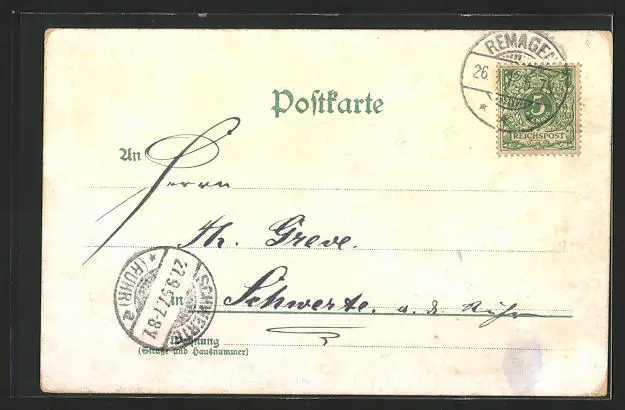 Postkarte
REMAGEN
26.
5
REICHSPOST
An
Herrn
Th. Greve.
in Schwerte. a. d. Ruhr
SCHWERTE
27.9.97.7-8V.
* (RUHR) a
Wohnung
(Straße und Hausnummer)